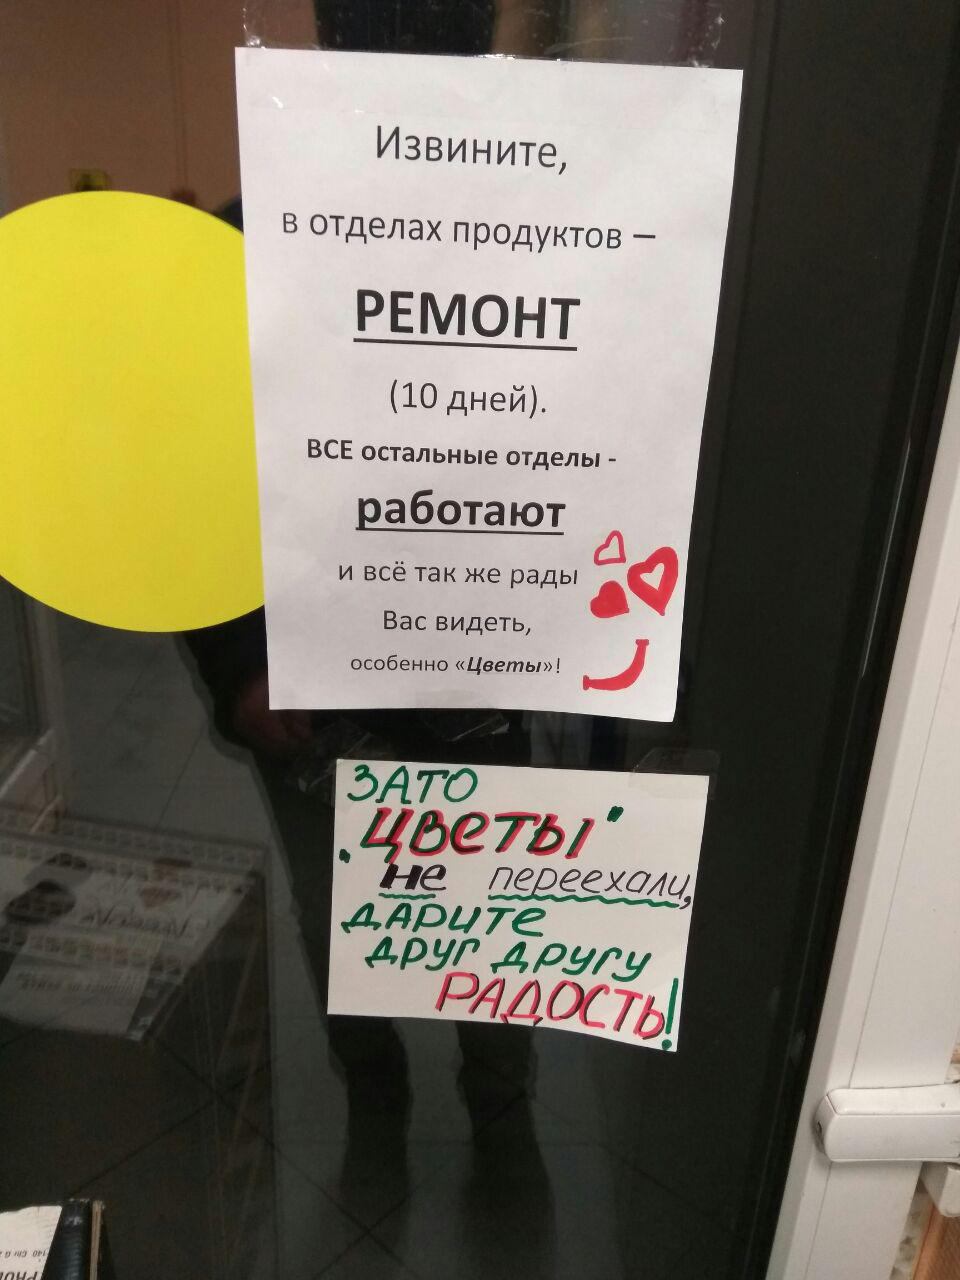 Извините,
в отделах продуктов –
РЕМОНТ
(10 дней).
ВСЕ остальные отделы -
работают
и всё так же рады
Вас видеть,
особенно «Цветы»!
ЗАТО
"ЦВЕТЫ"
не переехали,
ДАРИТЕ
ДРУГ ДРУГУ
РАДОСТЬ!